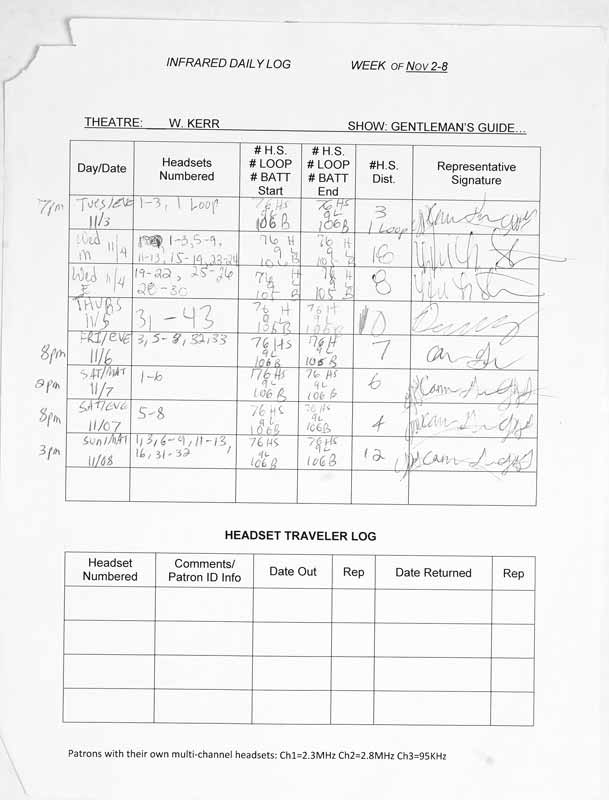 INFRARED DAILY LOG WEEK OF NOV 2-8
THEATRE: W. KERR SHOW: GENTLEMAN'S GUIDE...
Day/Date Headsets Numbered # H.S. # LOOP # BATT Start # H.S. # LOOP # BATT End #H.S. Dist. Representative Signature
7pm TUES/EVE 11/3 1-3, 1 Loop 76 HS 9L 106 B 76 HS 9L 106 B 3 1 Loop
Wed 11/4 m 1-3, 5-9, 11-13, 15-19, 23-24 76 H 9 L 76 H 9 L 16
Wed 11/4 E 19-22, 25-26 28-30 76 H 9 L 105 B 76 H 9 L 105 B 8
THURS 11/5 31-43 76 H 9L 106 B 76 H 9L 106 B
8pm FRI/EVE 11/6 3, 5-8, 32, 33 76 HS 9L 106 B 76 H 9L 106 B 7
2pm SAT/MAT 11/7 1-6 76 HS 9L 106 B 76 HS 9L 106 B 6
8pm SAT/EVE 11/07 5-8 76 HS 9L 106 B 76 HS 9L 106 B 4
3pm SUN/MAT 11/08 1, 3, 6-9, 11-13, 16, 31-32 76 HS 9L 106 B 76 HS 9L 106 B 12
HEADSET TRAVELER LOG
Headset Numbered Comments/ Patron ID Info Date Out Rep Date Returned Rep
Patrons with their own multi-channel headsets: Ch1=2.3MHz Ch2=2.8MHz Ch3=95KHz